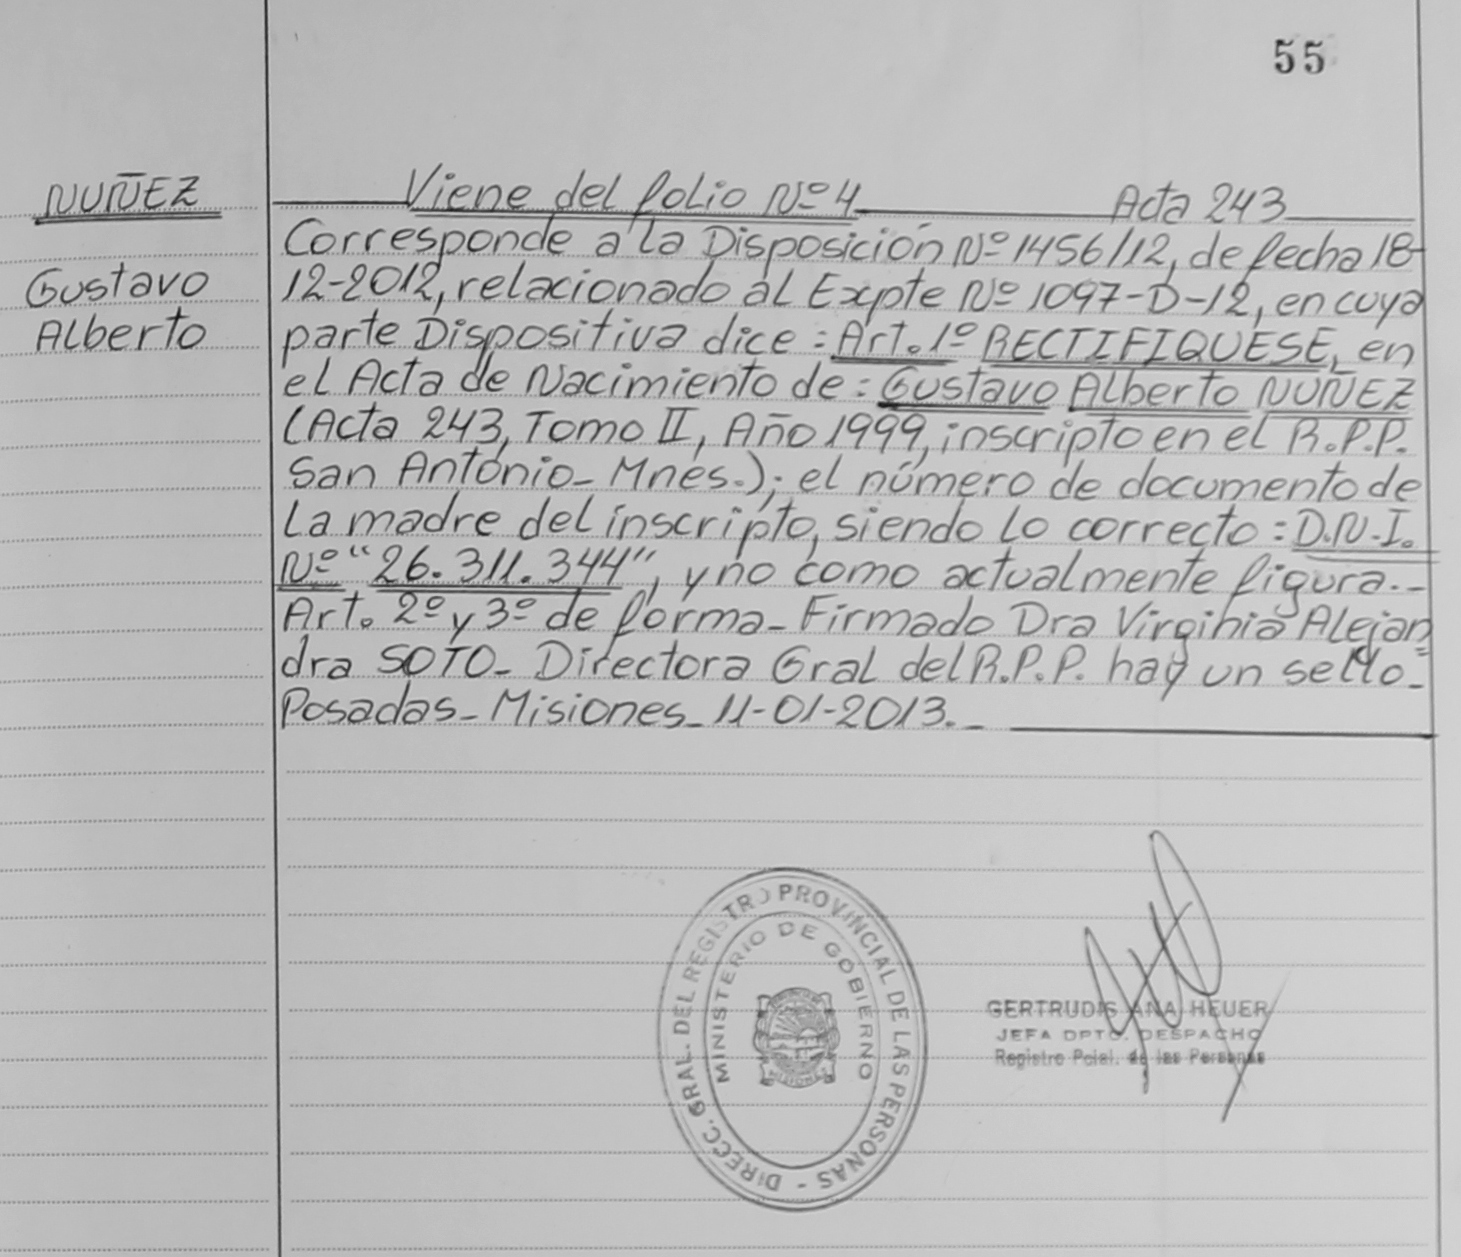 55
NUÑEZ
Gustavo
Alberto
Viene del folio Nº 4 Acta 243
Corresponde a la Disposición Nº 1456/12, de fecha 18-
12-2012, relacionado al Expte Nº 1097-D-12, en cuya
parte Dispositiva dice: Art. 1º RECTIFIQUESE, en
el Acta de Nacimiento de: Gustavo Alberto NUÑEZ
(Acta 243, Tomo II, Año 1999, inscripto en el R.P.P.
San Antonio_ Mnes.); el número de documento de
la madre del inscripto, siendo lo correcto: D.N.I.
Nº "26.311.344", y no como actualmente figura.-
Art. 2º y 3º de forma_ Firmado Dra Virginia Alejan=
dra SOTO_ Directora Gral del R.P.P. hay un sello_
Posadas_ Misiones_ 11-01-2013._
DIRECC. GRAL. DEL REGISTRO PROVINCIAL DE LAS PERSONAS -
MINISTERIO DE GOBIERNO
MISIONES
GERTRUDIS ANA HEUER
JEFA DPTO. DESPACHO
Registro Pcial. de las Personas